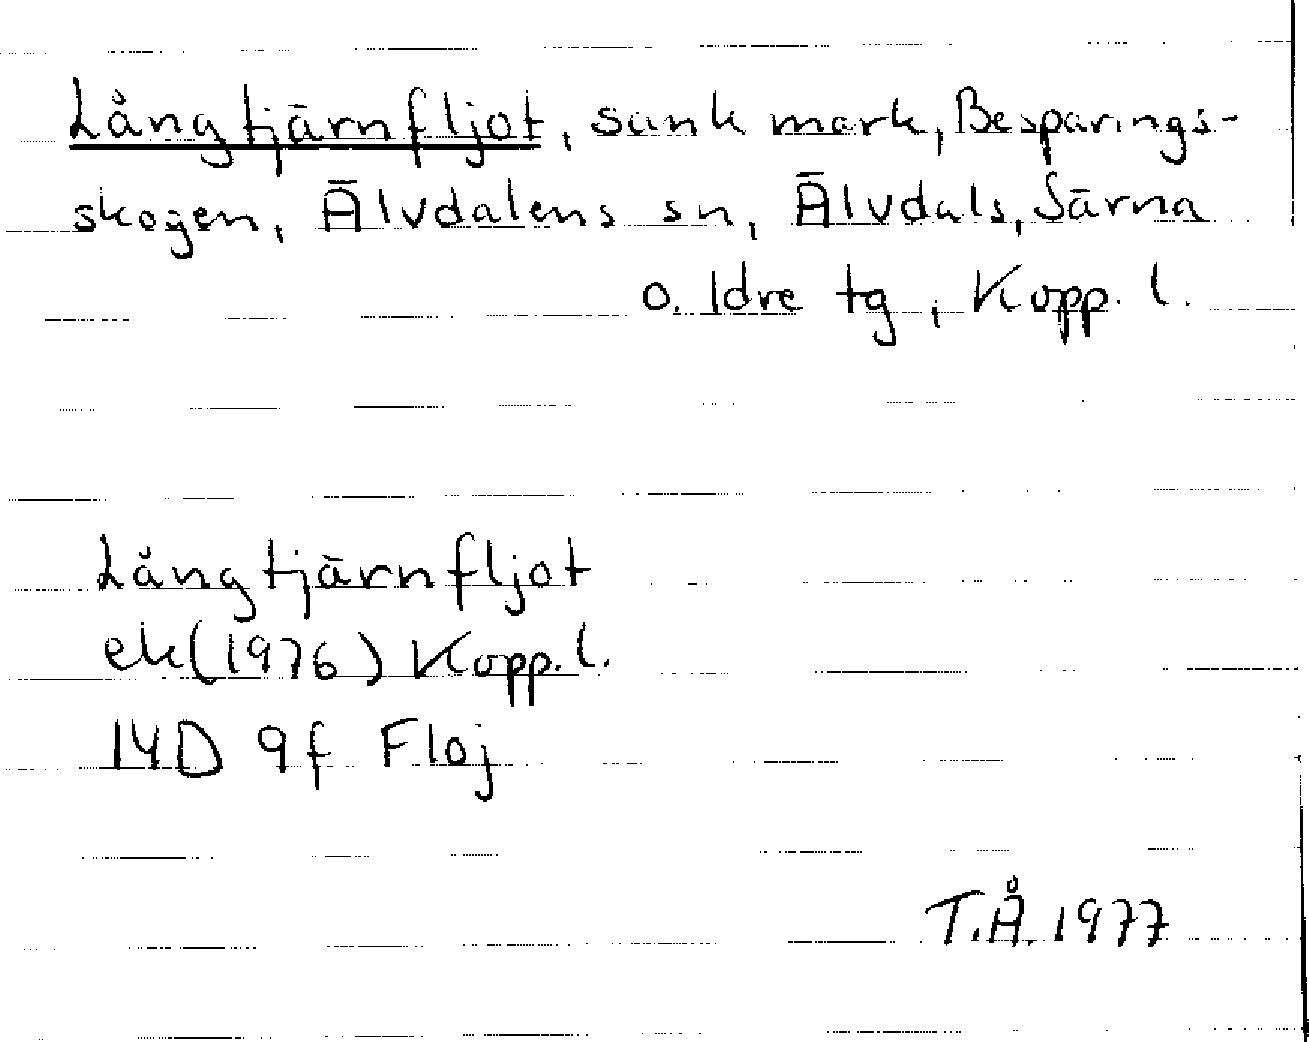 Långtjärnfljot, sank mark, Besparings-
skogen, Älvdalens sn, Älvdals, Särna
o. Idre tg, Kopp. l.
Långtjärnfljot
ek(1976) Kopp. l.
14D 9f Floj
T.Å. 1977